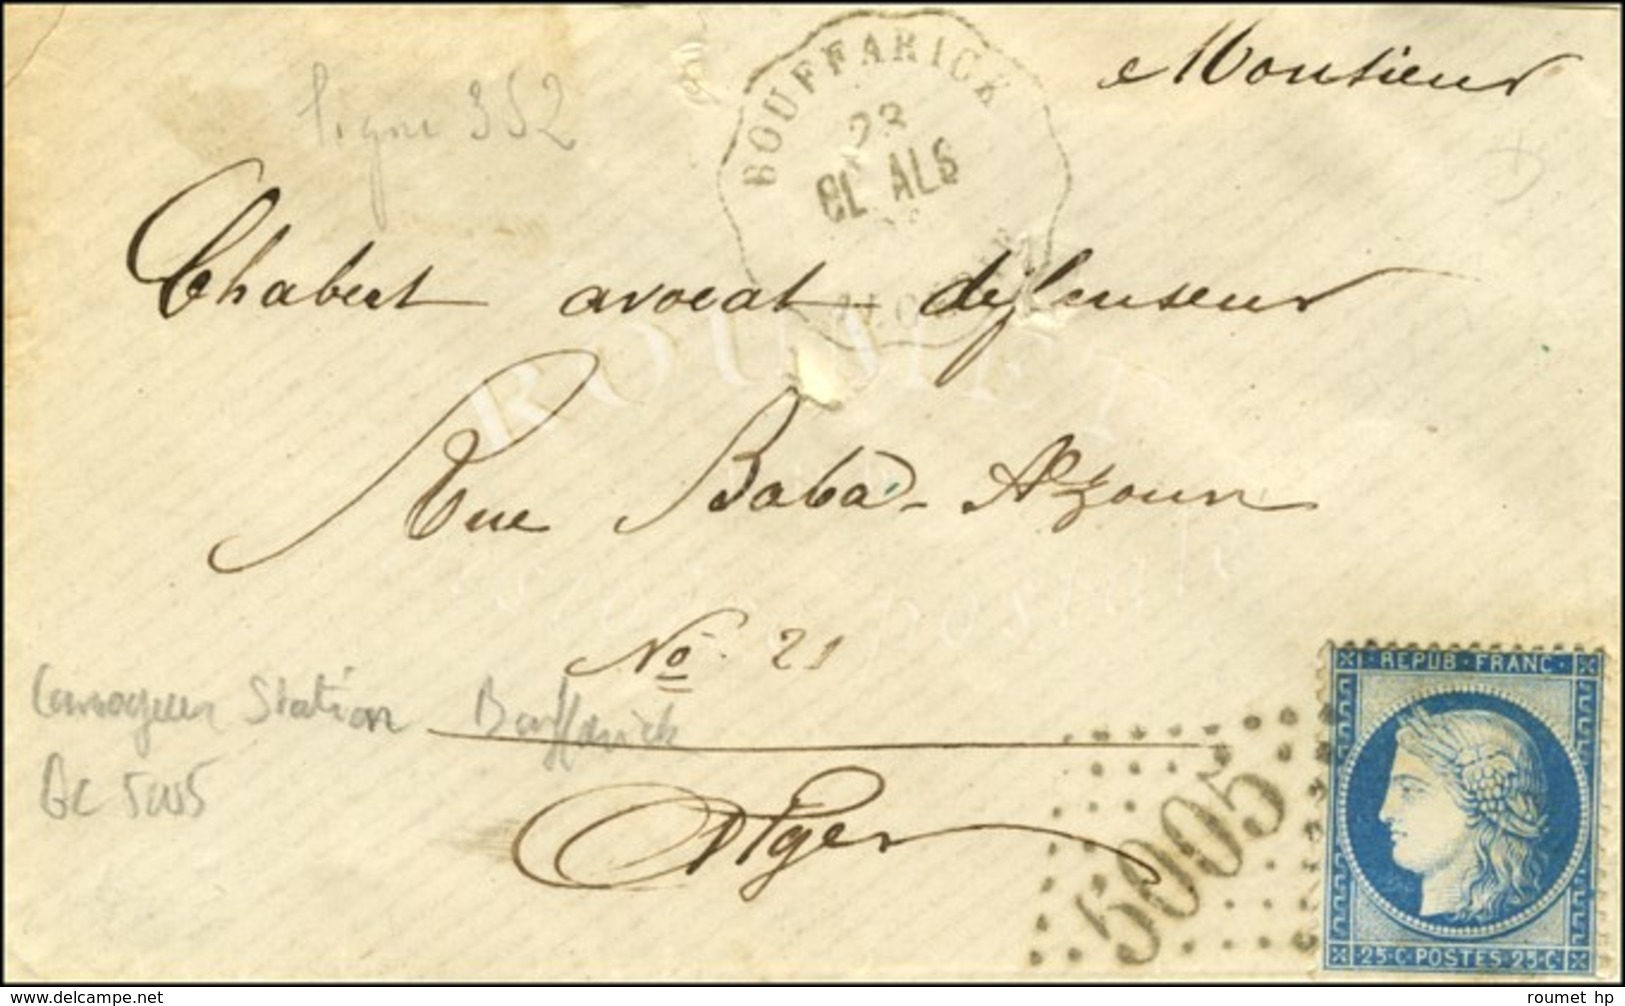 Monsieur
ligne 352
BOUFFARICK
23
EL ALG
Chabert avocat-défenseur
ROUMET
Rue Baba-Azoun
histoire postale
No. 21
Station Bouffarick
GC 5005
Alger
5005
REPUB·FRANC·
25·C·POSTES·25·C·
roumet hp